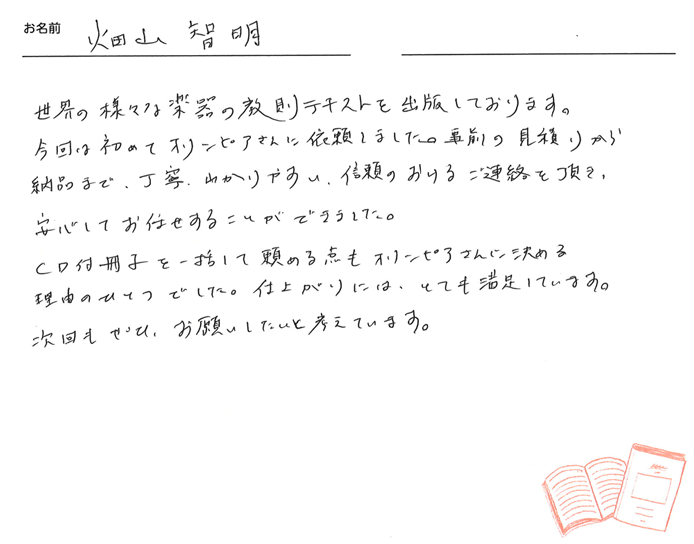 お名前 畑山 智明
世界の様々な楽器の教則テキストを出版しております。
今回は初めてオリンピアさんに依頼しました。事前の見積りから
納品まで、丁寧、わかりやすい、信頼のおけるご連絡を頂き、
安心してお任せすることができました。
CD付冊子を一括して頼める点もオリンピアさんに決める
理由のひとつでした。仕上がりには、とても満足しています。
次回もぜひ、お願いしたいと考えています。